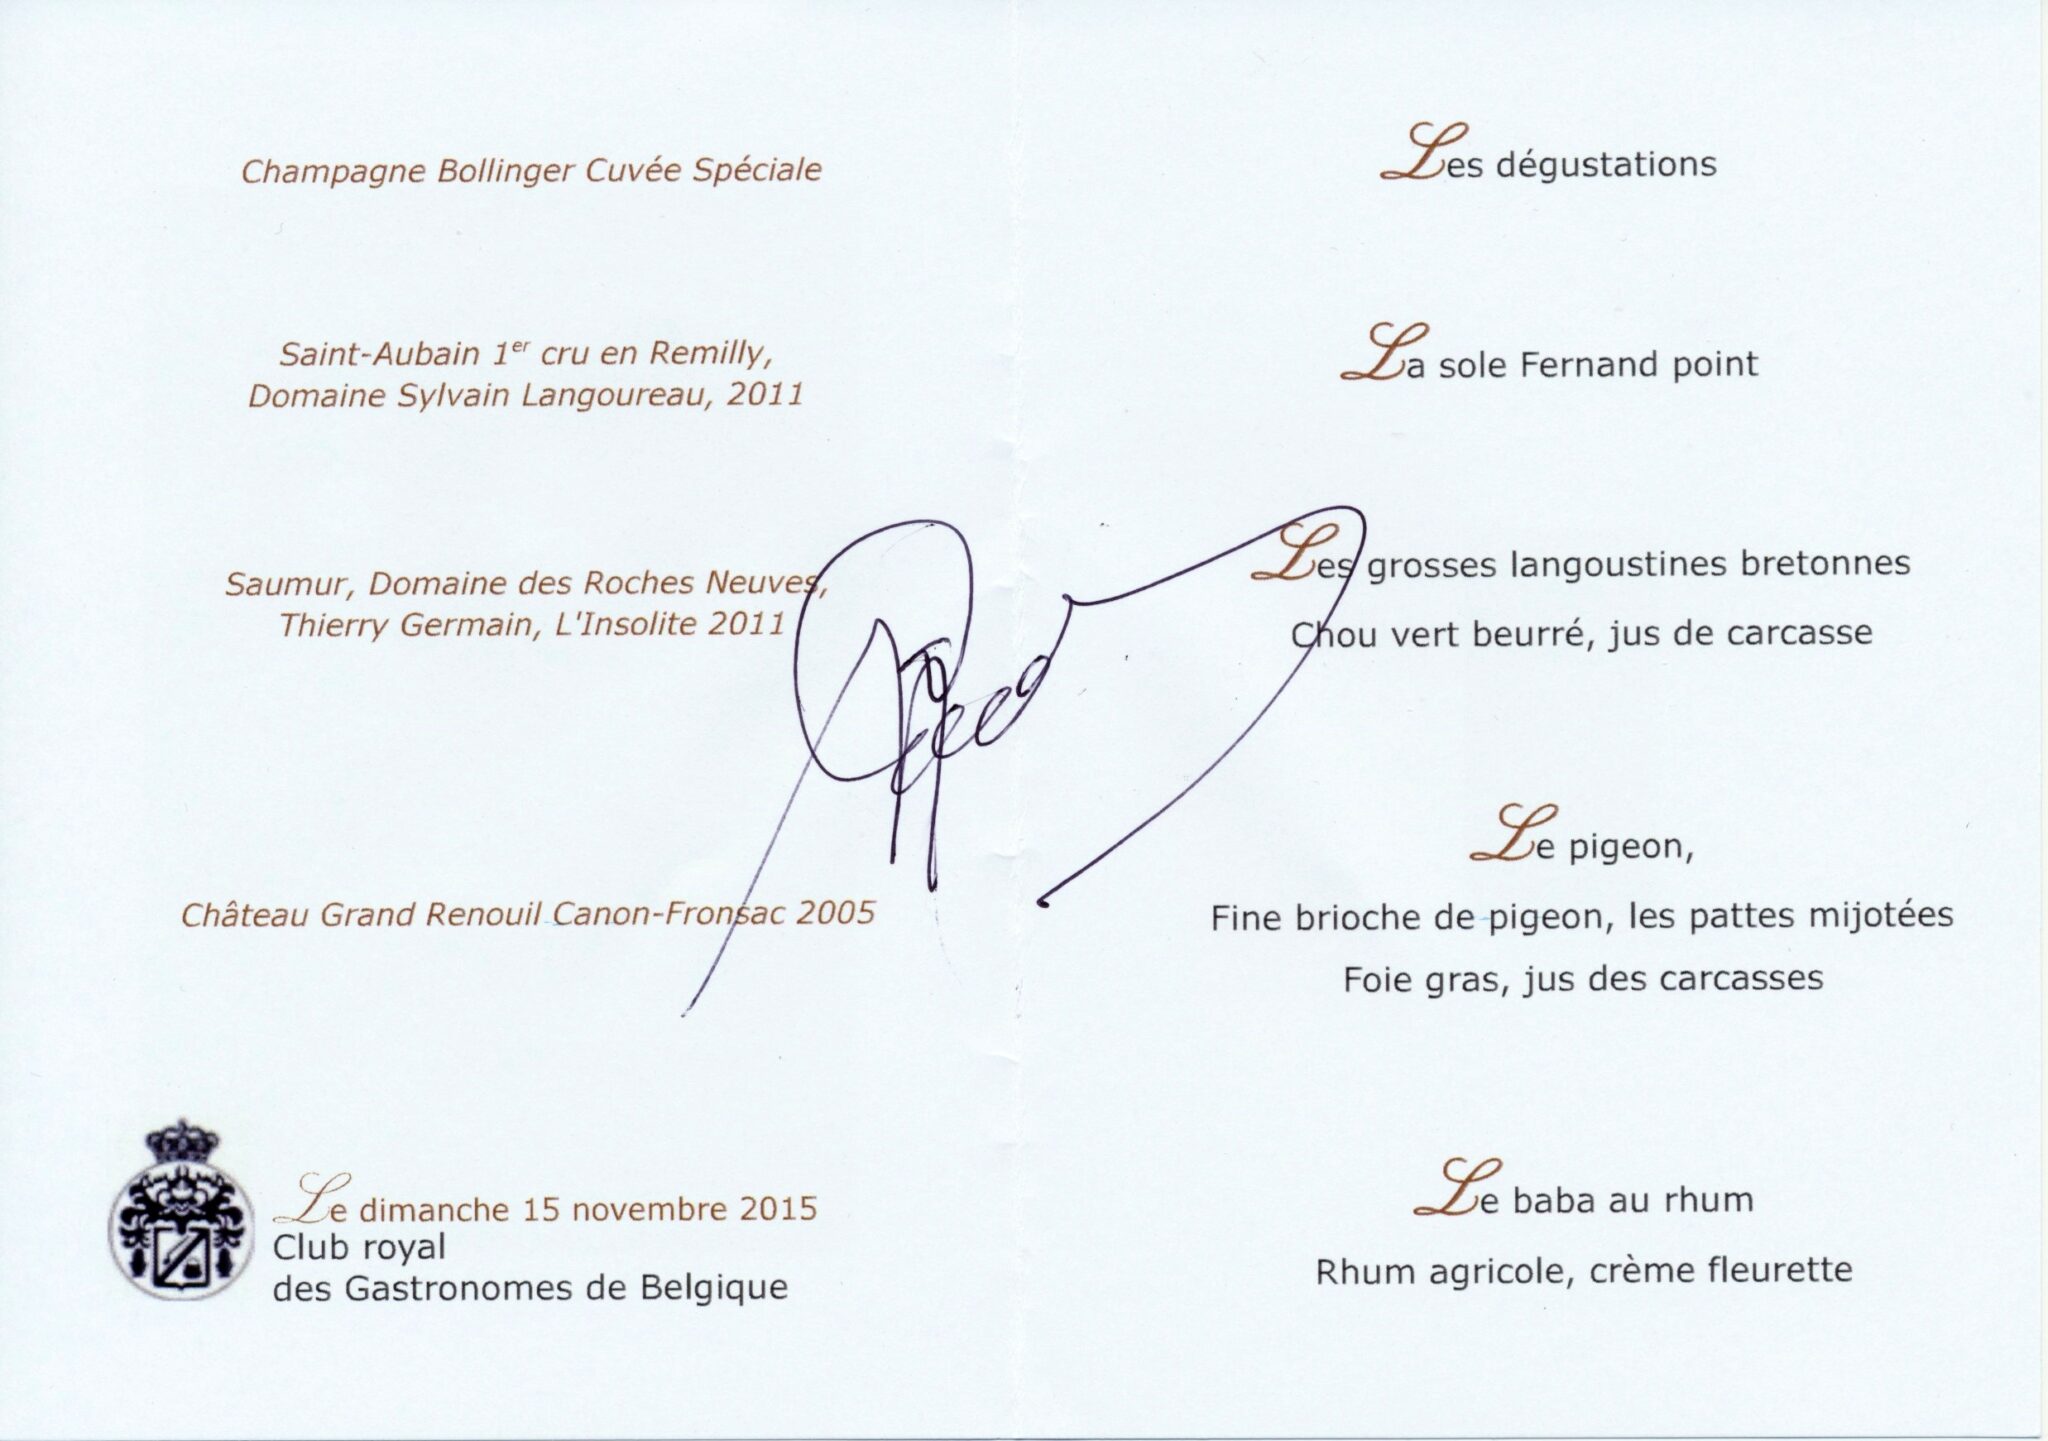 Champagne Bollinger Cuvée Spéciale
Saint-Aubain 1er cru en Remilly,
Domaine Sylvain Langoureau, 2011
Saumur, Domaine des Roches Neuves,
Thierry Germain, L'Insolite 2011
Château Grand Renouil Canon-Fronsac 2005
Le dimanche 15 novembre 2015
Club royal
des Gastronomes de Belgique
Les dégustations
La sole Fernand point
Les grosses langoustines bretonnes
Chou vert beurré, jus de carcasse
Le pigeon,
Fine brioche de pigeon, les pattes mijotées
Foie gras, jus des carcasses
Le baba au rhum
Rhum agricole, crème fleurette